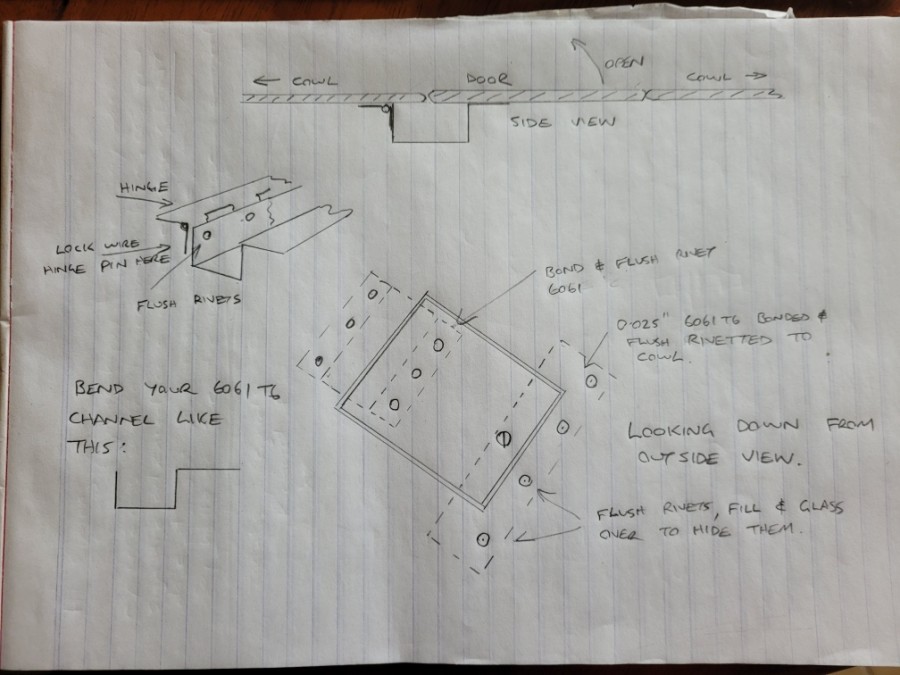 ← COWL
DOOR
COWL →
OPEN
SIDE VIEW
HINGE
LOCK WIRE
HINGE PIN HERE
FLUSH RIVETS
BOND & FLUSH RIVET
6061
0.025" 6061 T6 BONDED &
FLUSH RIVETTED TO
COWL.
BEND YOUR 6061 T6
CHANNEL LIKE
THIS:
LOOKING DOWN FROM
OUTSIDE VIEW.
FLUSH RIVETS, FILL & GLASS
OVER TO HIDE THEM.